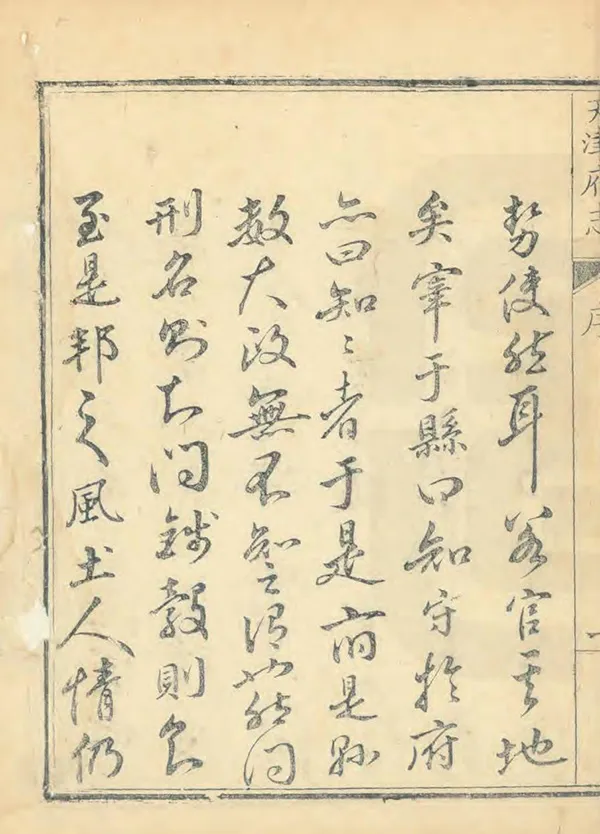 天津府志
序
一
勢使然耳若官其地
矣宰于縣曰知守於府
亦曰知〻者于是府是縣
大政無不知之謂也然問
刑名則問錢穀則
至是邦之風土人情仍